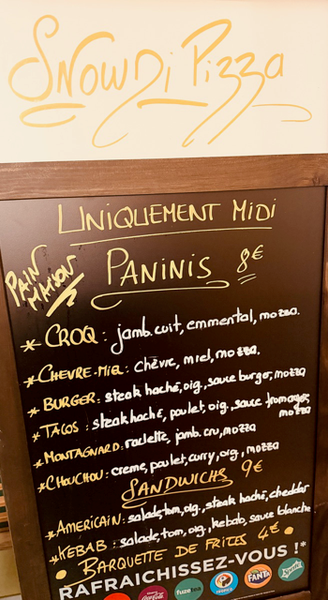 SNOWDI PIZZA
UNIQUEMENT MIDI
PAIN MAISON
PANINIS 8€
* CROQ: jamb. cuit, emmental, mozza.
* CHEVRE-MIEL: chèvre, miel, mozza.
* BURGER: steak haché, oig., sauce burger, mozza
* TACOS: steak haché, poulet, oig., sauce fromagère, mozza
* MONTAGNARD: raclette, jamb. cru, mozza
* CHOUCHOU: creme, poulet, curry, oig., mozza
SANDWICHS 9€
* AMERICAIN: salade, tom, oig., steak haché, cheddar
* KEBAB: salade, tom, oig., kebab, sauce blanche
• BARQUETTE DE FRITES 4€ •
RAFRAICHISSEZ-VOUS !*
fuzetea
FANTA